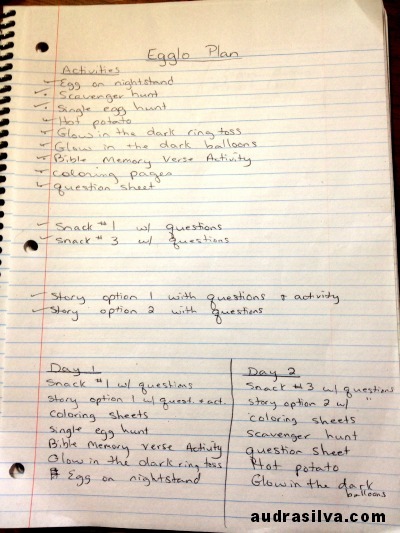 Egglo Plan
Activities
Egg on nightstand
Scavenger hunt
Single egg hunt
Hot potato
Glow in the dark ring toss
Glow in the dark balloons
Bible Memory Verse Activity
coloring pages
question sheet
Snack #1 w/ questions
Snack #3 w/ questions
Story option 1 with questions & activity
Story option 2 with questions
Day 1
Snack #1 w/ questions
Story option 1 w/ quest. & act.
coloring sheets
single egg hunt
Bible Memory verse Activity
Glow in the dark ring toss
Egg on nightstand
Day 2
Snack #3 w/ questions
Story option 2 w/ "
coloring sheets
scavenger hunt
question sheet
Hot potato
Glow in the dark
balloons
audrasilva.com